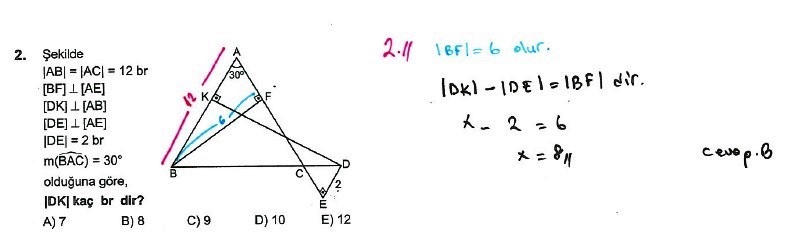 2. Şekilde
|AB| = |AC| = 12 br
[BF] ⊥ [AE]
[DK] ⊥ [AB]
[DE] ⊥ [AE]
|DE| = 2 br
m(BAC) = 30°
olduğuna göre,
|DK| kaç br dir?
A) 7 B) 8 C) 9 D) 10 E) 12
A
30°
K
F
12
6
B
C
D
2
E
2.//
|BF| = 6 olur.
|DK| - |DE| = |BF| dir.
x - 2 = 6
x = 8//
cevap. B